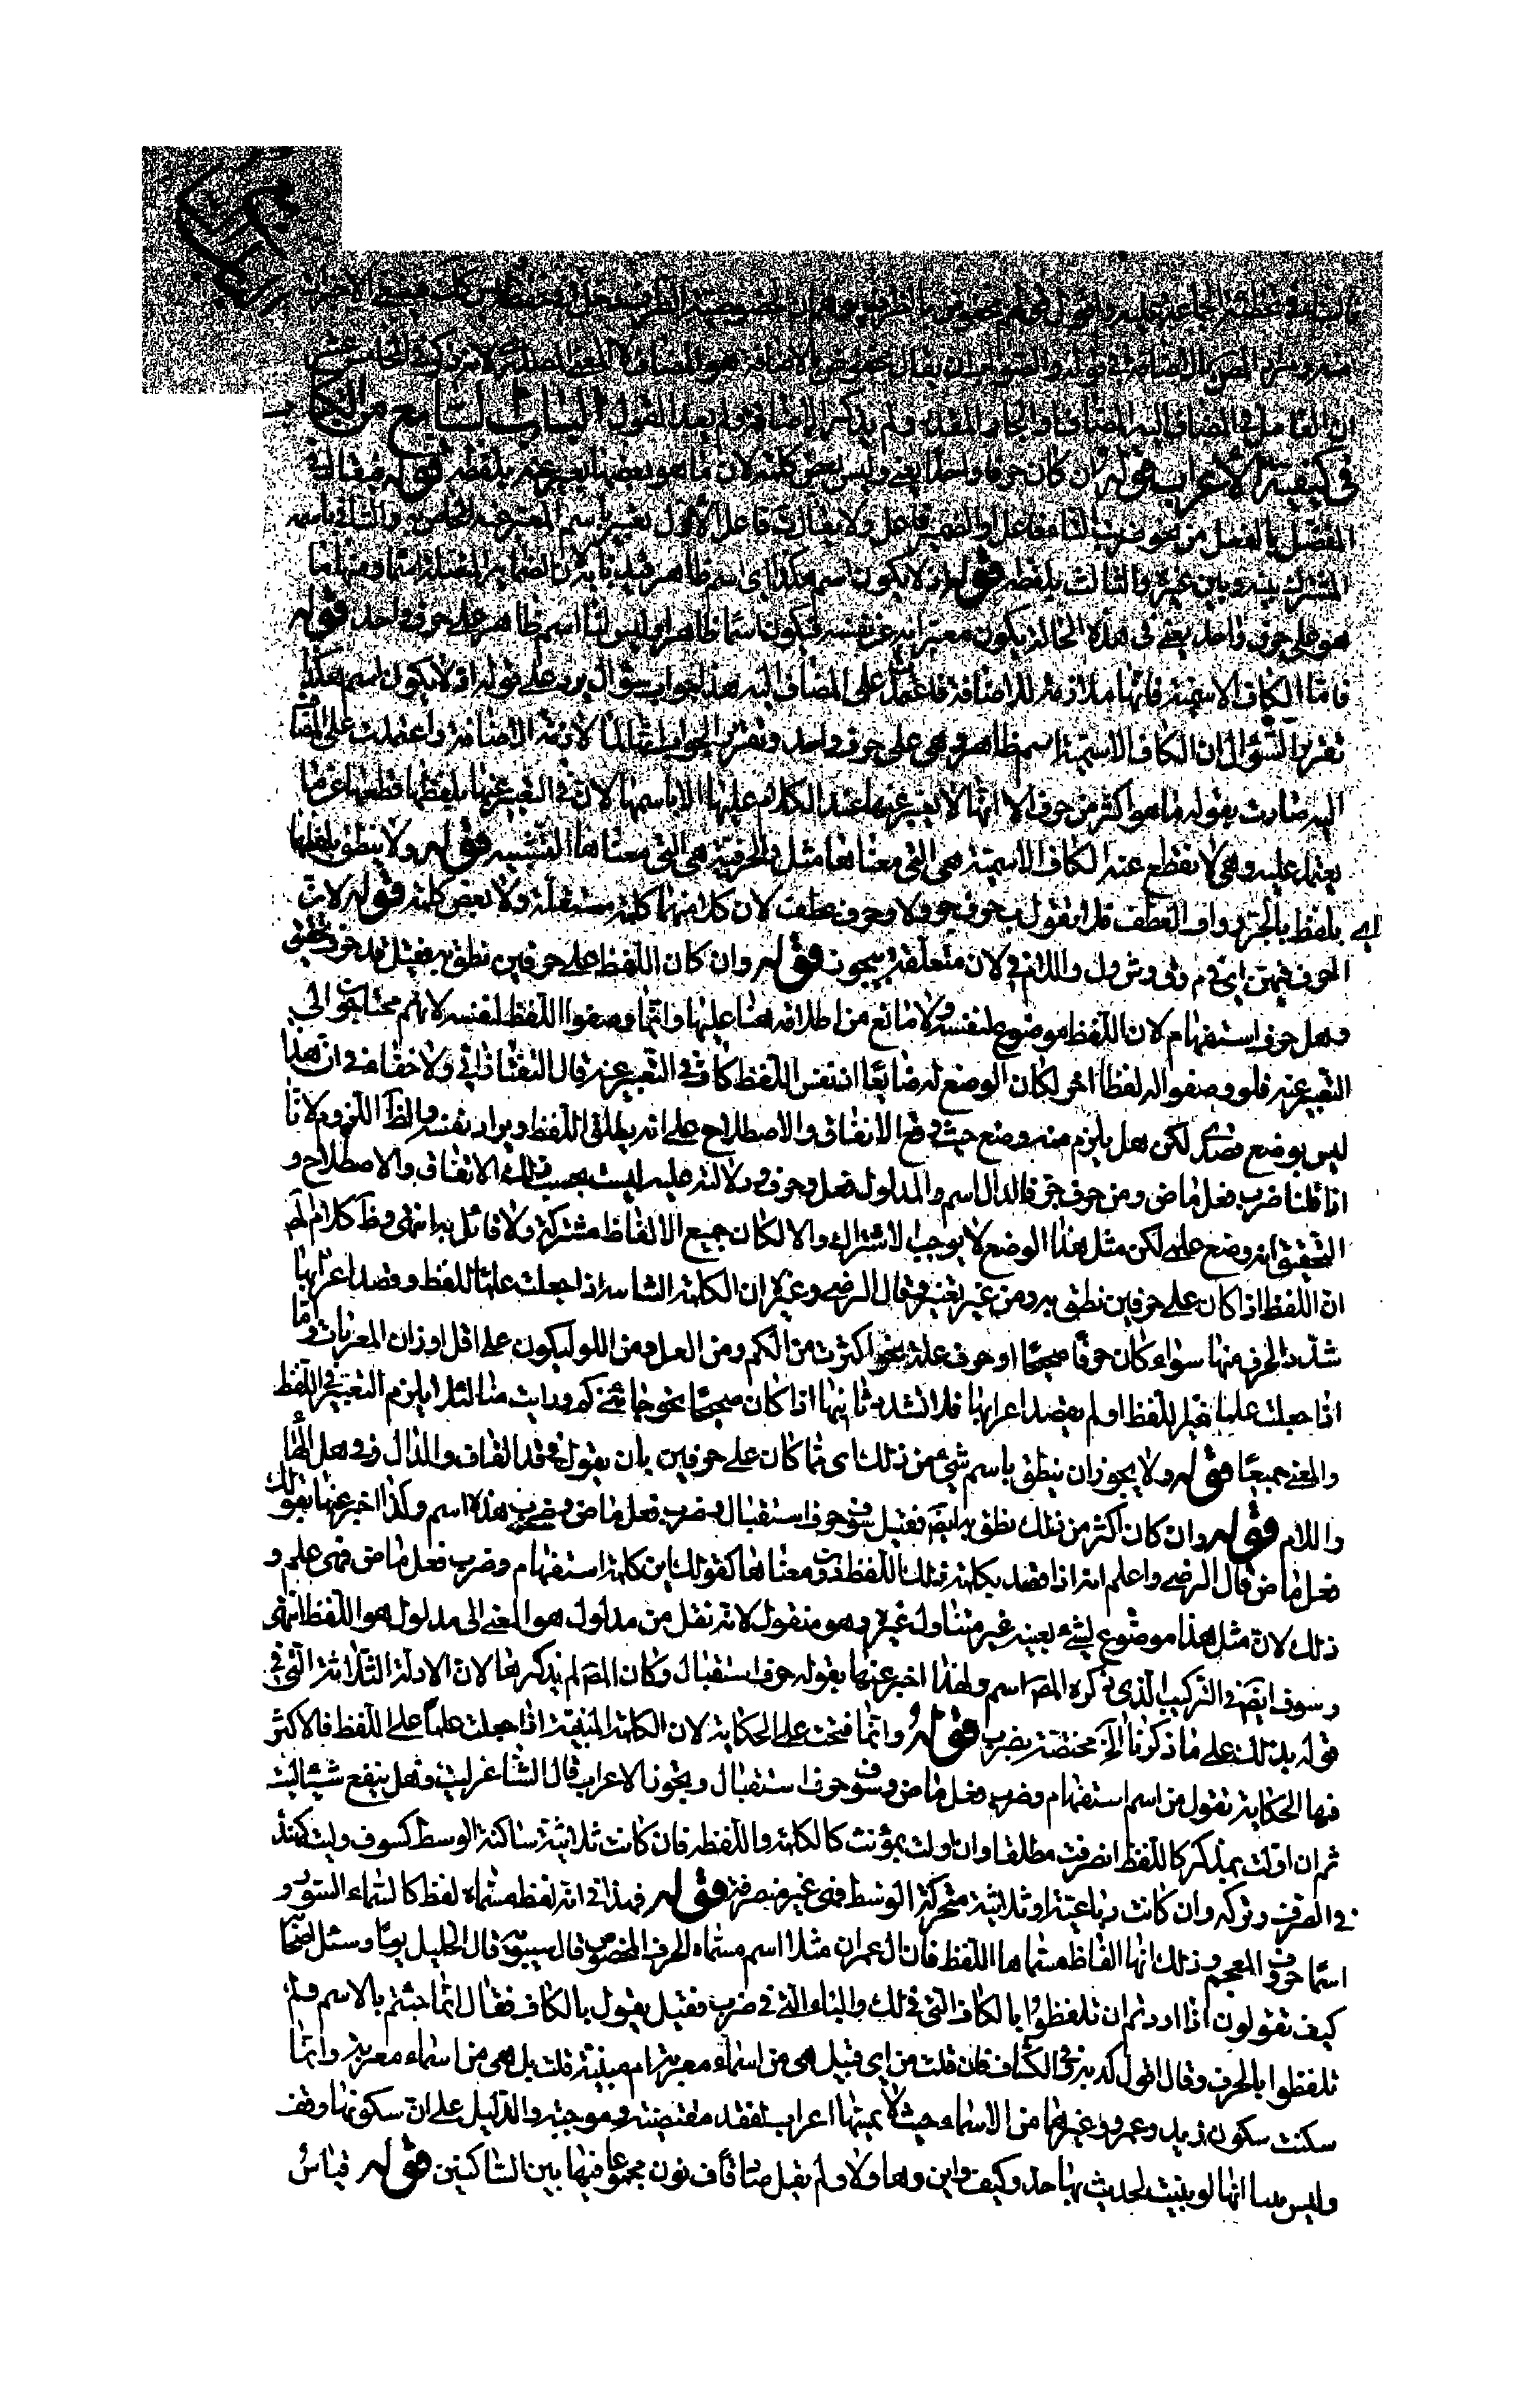 ان العامل في المضاف اليه المضاف او الجار المقدر ولم يذكر الاضافة ولم يعد القول الباب السابع من الكتاب
في كيفية الاعراب قوله ان كان حرفا واحدا يعني وليس بعض كلمة لان ما هو بعضها يعبر عنه بلفظه قوله فيقال في
المتصل بالفعل من نحو ضربت التاء فاعل او الضمير فاعل ولا يقال ت فاعل الاول تعبير باسم المعتبر عنه الخاص به والثاني باسمه
المشترك بينه وبين غيره والثالث بلفظه قوله اذ لا يكون اسم هكذا اي اسم ظاهر فيه بان الضماير المتصلة اسماء ومنها ما
هو على حرف واحد يعني في هذه الحالة يكون معبرا به عن نفسه فيكون اسما ظاهرا وليس لنا اسم ظاهر على حرف واحد قوله
فاما الكاف الاسمية فانها ملازمة للاضافة فاعتمدت على المضاف اليه هذا جواب سؤال يرد على قوله اذ لا يكون اسم هكذا
تقرير السؤال ان الكاف الاسمية اسم ظاهر وهي على حرف واحد وتقرير الجواب انها لما لازمت الاضافة واعتمدت على المضاف
اليه صارت بقوله ما هو اكثر من حرف الا انها لا يعبر عنها عند الكلام عليها الا باسمها لان في التعبير عنها بلفظها قطعها عن ما
يعتمد عليه وهي لا تقطع عنه الكاف الاسمية هي التي معناها مثل والحرفية هي التي معناها التشبيه قوله ولا ينطق بلفظها
اي بلفظ باء الجر وواو العطف فلا تقول ب حرف جر ولا و حرف عطف لان كلا منهما كلمة مستقلة ولا بعض كلمة قوله لان
الحرف فيهن اي في م وق وش ول واللام في لان متعلقة بيجوز قوله وان كان اللفظ على حرفين نطق به فقيل قد حرف تحقيق
وهل حرف استفهام لان اللفظ موضوع لنفسه ولا مانع من اطلاقه هنا عليها وانما وضعوا اللفظ لنفسه لانهم محتاجون الى
التعبير عنه فلو وضعوا له لفظا اخر لكان الوضع له ضايعا اذ نفس اللفظ كاف في التعبير عنه قال التفتازاني ولا خفاء في ان هذا
ليس بوضع قصدي لكن هل يلزم منه وضع حيث وقع الاتفاق والاصطلاح على انه يطلق اللفظ ويراد نفسه والظ اللزوم لانا
اذا قلنا ضرب فعل ماض ومن حرف جر فالدال اسم والمدلول فعل وحرف ودلالته عليه ليست بحسب ذلك الاتفاق والاصطلاح و
التحقيق انه وضع علمي لكن مثل هذا الوضع لا يوجب الاشتراك والا لكان جميع الالفاظ مشتركة ولا قائل به انتهى وظ كلام المص
ان اللفظ اذا كان على حرفين نطق به ومن غير تغيير وقال الرضي وغيره ان الكلمة الثنائية اذا جعلت علما للفظ وقصد اعرابها
شدد الحرف منها سواء كان حرفا صحيحا او حرف علة نحو اكثرت من الكم ومن العل ومن اللو ليكون على اقل اوزان المعربات واما
اذا جعلت علما لغير اللفظ او لم يقصد اعرابها فلا تشدد ثانيها اذا كان صحيحا نحو جائني كم ورايت منا لئلا يلزم التغيير في اللفظ
والمعنى جميعا قوله ولا يجوز ان ينطق باسم شيء من ذلك اي مما كان على حرفين بان يقول في قد القاف والدال وفي هل الهاء
واللام قوله وان كان اكثر من ذلك نطق به ايضا فقيل سوف حرف استقبال وضرب فعل ماض وضرب هذه اسم ولذا اخبر عنها بقولك
فعل ماض قال الرضي واعلم انه اذا قصد بكلمة ذلك اللفظ دون معناها كقولك اين كلمة استفهام وضرب فعل ماض فهي علم و
ذلك لان مثل هذا موضوع لشيء بعينه غير متناول غيره وهو منقول لانه نقل من مدلول هو المعنى الى مدلول هو اللفظ انتهى
وسوف ايضا في التركيب الذي ذكره المص اسم ولهذا اخبر عنها بقوله حرف استقبال وكان المص لم يذكرها لان الادلة الثلاثة التي في
قوله يدلك على ما ذكرنا الخ مختصة بضرب قوله وانما فتحت على الحكاية لان الكلمة المبنية اذا جعلت علما على اللفظ فالاكثر
فيها الحكاية تقول من اسم استفهام وضرب فعل ماض وسوف حرف استقبال ويجوز الاعراب قال الشاعر ليت وهل ينفع شيئا ليت
ثم ان اولت بمذكر كاللفظ انصرفت مطلقا وان اولت بمؤنث كالكلمة واللفظة فان كانت ثلاثية ساكنة الوسط كسوف وليت كهند
في الصرف وتركه وان كانت رباعية او ثلاثية متحركة الوسط فهي غير منصرفة قوله فهذا في انه لفظ مسماه لفظ كاسماء السور و
اسما حروف المعجم وذلك انها الفاظ مسماها اللفظ فان ال عمران مثلا اسم مسماه الحرف المخصوص قال سيبويه قال الخليل يوما وسئل اصحابه
كيف تقولون اذا اردتم ان تلفظوا بالكاف التي في لك والباء التي في ضرب فقيل يقول بالكاف فقال انما جئتم بالاسم ولم
تلفظوا بالحرف وقال اقول كه به وفي الكشاف فان قلت من اي قبيل هي من اسماء معربة ام مبنية قلت بل هي من اسماء معربة وانما
سكنت سكون زيد وعمرو وغيرهما من الاسماء حيث لا يمسها اعراب لفقد مقتضيه وموجبه والدليل على ان سكونها وقف
وليس ببناء انها لو بنيت لحديث بها حذو كيف واين وهاولاء ولم يقل صاد قاف نون مجموعا فيها بين الساكنين قوله قياس